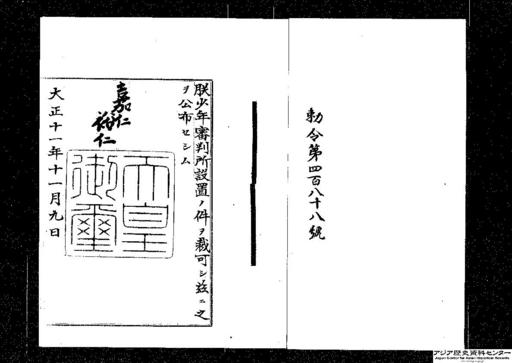 勅令第四百八十八號
朕少年審判所設置ノ件ヲ裁可シ茲ニ之
ヲ公布セシム
嘉仁
裕仁
天皇
御璽
大正十一年十一月九日
アジア歴史資料センター
Japan Center for Asian Historical Records